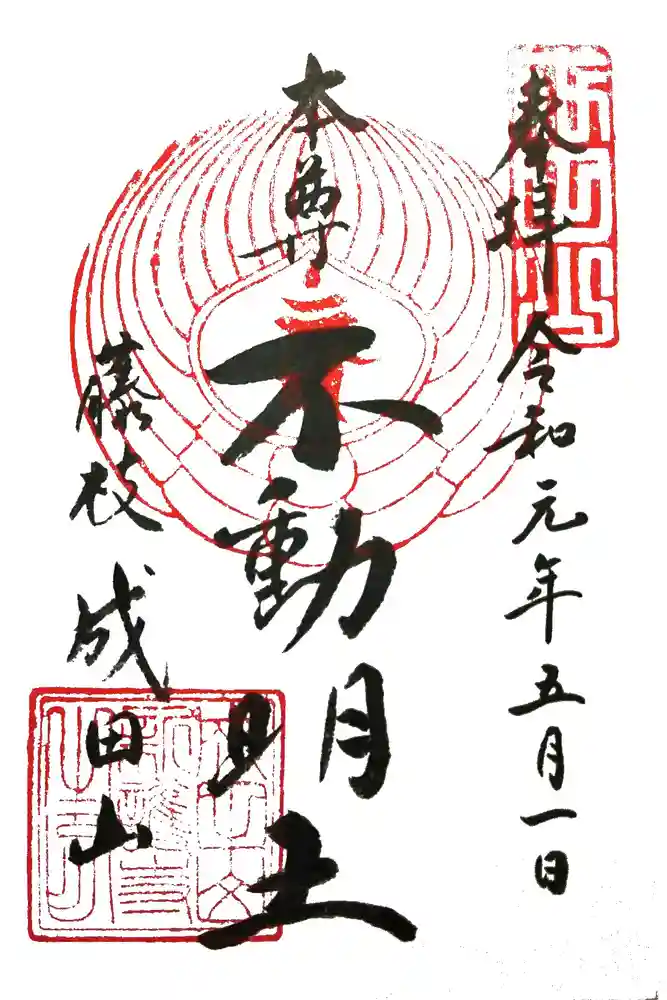 奉拝 令和元年五月一日
本尊 不動明王
藤枝 成田山